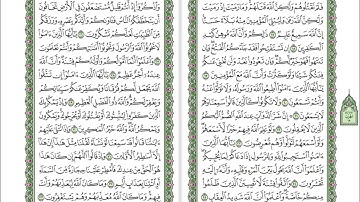 فَلَمْ تَقْتُلُوهُمْ وَلَٰكِنَّ ٱللَّهَ قَتَلَهُمْ وَمَا رَمَيْتَ إِذْ رَمَيْتَ
وَلَٰكِنَّ ٱللَّهَ رَمَىٰ وَلِيُبْلِىَ ٱلْمُؤْمِنِينَ مِنْهُ بَلَآءً حَسَنًا
إِنَّ ٱللَّهَ سَمِيعٌ عَلِيمٌ ۝ ذَٰلِكُمْ وَأَنَّ ٱللَّهَ مُوهِنُ كَيْدِ
ٱلْكَٰفِرِينَ ۝ إِن تَسْتَفْتِحُوا۟ فَقَدْ جَآءَكُمُ ٱلْفَتْحُ وَإِن
تَنتَهُوا۟ فَهُوَ خَيْرٌ لَّكُمْ وَإِن تَعُودُوا۟ نَعُدْ وَلَن تُغْنِىَ
عَنكُمْ فِئَتُكُمْ شَيْـًٔا وَلَوْ كَثُرَتْ وَأَنَّ ٱللَّهَ مَعَ ٱلْمُؤْمِنِينَ
۝ يَٰٓأَيُّهَا ٱلَّذِينَ ءَامَنُوٓا۟ أَطِيعُوا۟ ٱللَّهَ وَرَسُولَهُۥ وَلَا تَوَلَّوْا۟ عَنْهُ
وَأَنتُمْ تَسْمَعُونَ ۝ وَلَا تَكُونُوا۟ كَٱلَّذِينَ قَالُوا۟ سَمِعْنَا وَهُمْ
لَا يَسْمَعُونَ ۝ إِنَّ شَرَّ ٱلدَّوَآبِّ عِندَ ٱللَّهِ ٱلصُّمُّ ٱلْبُكْمُ ٱلَّذِينَ
لَا يَعْقِلُونَ ۝ وَلَوْ عَلِمَ ٱللَّهُ فِيهِمْ خَيْرًا لَّأَسْمَعَهُمْ وَلَوْ
أَسْمَعَهُمْ لَتَوَلَّوا۟ وَّهُم مُّعْرِضُونَ ۝ يَٰٓأَيُّهَا ٱلَّذِينَ ءَامَنُوا۟
ٱسْتَجِيبُوا۟ لِلَّهِ وَلِلرَّسُولِ إِذَا دَعَاكُمْ لِمَا يُحْيِيكُمْ وَٱعْلَمُوٓا۟
أَنَّ ٱللَّهَ يَحُولُ بَيْنَ ٱلْمَرْءِ وَقَلْبِهِۦ وَأَنَّهُۥٓ إِلَيْهِ
تُحْشَرُونَ ۝ وَٱتَّقُوا۟ فِتْنَةً لَّا تُصِيبَنَّ ٱلَّذِينَ ظَلَمُوا۟
مِنكُمْ خَآصَّةً وَٱعْلَمُوٓا۟ أَنَّ ٱللَّهَ شَدِيدُ ٱلْعِقَابِ ۝
وَٱذْكُرُوٓا۟ إِذْ أَنتُمْ قَلِيلٌ مُّسْتَضْعَفُونَ فِى ٱلْأَرْضِ تَخَافُونَ
أَن يَتَخَطَّفَكُمُ ٱلنَّاسُ فَـَٔاوَىٰكُمْ وَأَيَّدَكُم بِنَصْرِهِۦ وَرَزَقَكُم
مِّنَ ٱلطَّيِّبَٰتِ لَعَلَّكُمْ تَشْكُرُونَ ۝ يَٰٓأَيُّهَا ٱلَّذِينَ ءَامَنُوا۟
لَا تَخُونُوا۟ ٱللَّهَ وَٱلرَّسُولَ وَتَخُونُوٓا۟ أَمَٰنَٰتِكُمْ وَأَنتُمْ تَعْلَمُونَ
۝ وَٱعْلَمُوٓا۟ أَنَّمَآ أَمْوَٰلُكُمْ وَأَوْلَٰدُكُمْ فِتْنَةٌ وَأَنَّ ٱللَّهَ
عِندَهُۥٓ أَجْرٌ عَظِيمٌ ۝ يَٰٓأَيُّهَا ٱلَّذِينَ ءَامَنُوٓا۟ إِن تَتَّقُوا۟
ٱللَّهَ يَجْعَل لَّكُمْ فُرْقَانًا وَيُكَفِّرْ عَنكُمْ سَيِّـَٔاتِكُمْ
وَيَغْفِرْ لَكُمْ وَٱللَّهُ ذُو ٱلْفَضْلِ ٱلْعَظِيمِ ۝ وَإِذْ يَمْكُرُ
بِكَ ٱلَّذِينَ كَفَرُوا۟ لِيُثْبِتُوكَ أَوْ يَقْتُلُوكَ أَوْ يُخْرِجُوكَ
وَيَمْكُرُونَ وَيَمْكُرُ ٱللَّهُ وَٱللَّهُ خَيْرُ ٱلْمَٰكِرِينَ ۝ وَإِذَا تُتْلَىٰ
عَلَيْهِمْ ءَايَٰتُنَا قَالُوا۟ قَدْ سَمِعْنَا لَوْ نَشَآءُ لَقُلْنَا مِثْلَ هَٰذَآ إِنْ هَٰذَآ
إِلَّآ أَسَٰطِيرُ ٱلْأَوَّلِينَ ۝ وَإِذْ قَالُوا۟ ٱللَّهُمَّ إِن كَانَ هَٰذَا
هُوَ ٱلْحَقَّ مِنْ عِندِكَ فَأَمْطِرْ عَلَيْنَا حِجَارَةً مِّنَ ٱلسَّمَآءِ
أَوِ ٱئْتِنَا بِعَذَابٍ أَلِيمٍ ۝ وَمَا كَانَ ٱللَّهُ لِيُعَذِّبَهُمْ وَأَنتَ
فِيهِمْ وَمَا كَانَ ٱللَّهُ مُعَذِّبَهُمْ وَهُمْ يَسْتَغْفِرُونَ ۝